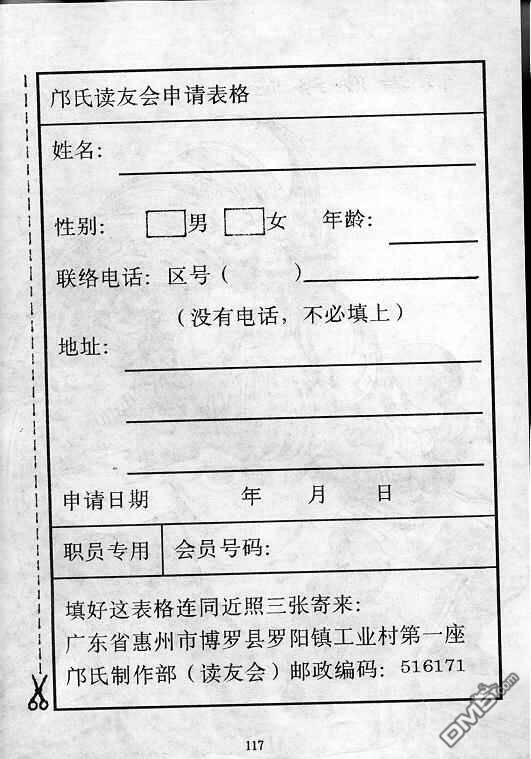 邝氏读友会申请表格
姓名:
性别: 男 女 年龄:
联络电话: 区号( )
(没有电话,不必填上)
地址:
申请日期 年 月 日
职员专用 会员号码:
填好这表格连同近照三张寄来:
广东省惠州市博罗县罗阳镇工业村第一座
邝氏制作部(读友会)邮政编码: 516171
117